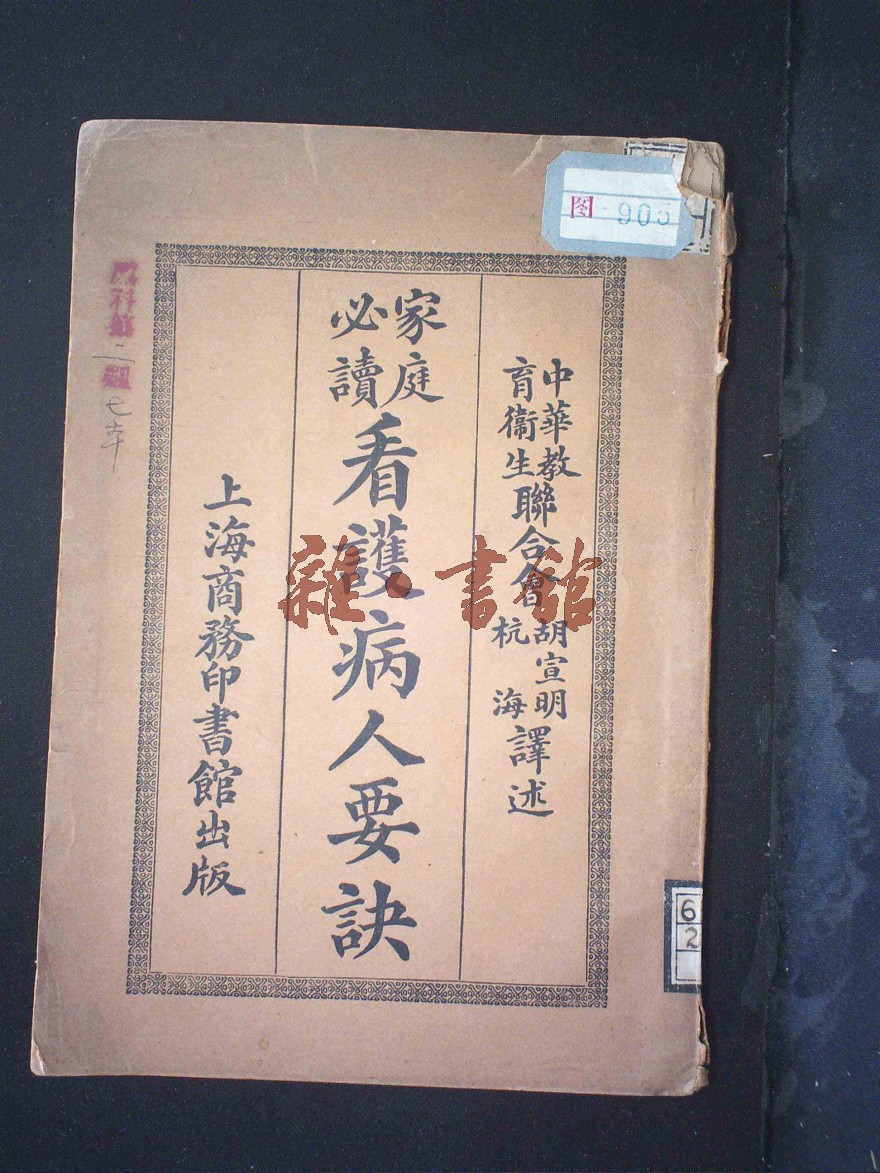 中華教育衞生聯合會 胡宣明 杭海 譯述
家庭必讀 看護病人要訣
上海商務印書館出版
雜·書館
图 905
6
2